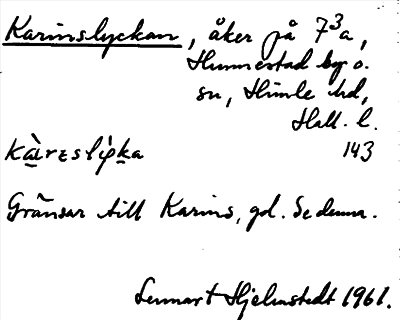 Karinslyckan, åker på 7³a,
Hunnestad by o.
sn, Himle hd,
Hall. l.
kàːrɛslỳka 143
Gränsar till Karins, gd. Se denna.
Lennart Hjelmstedt 1961.